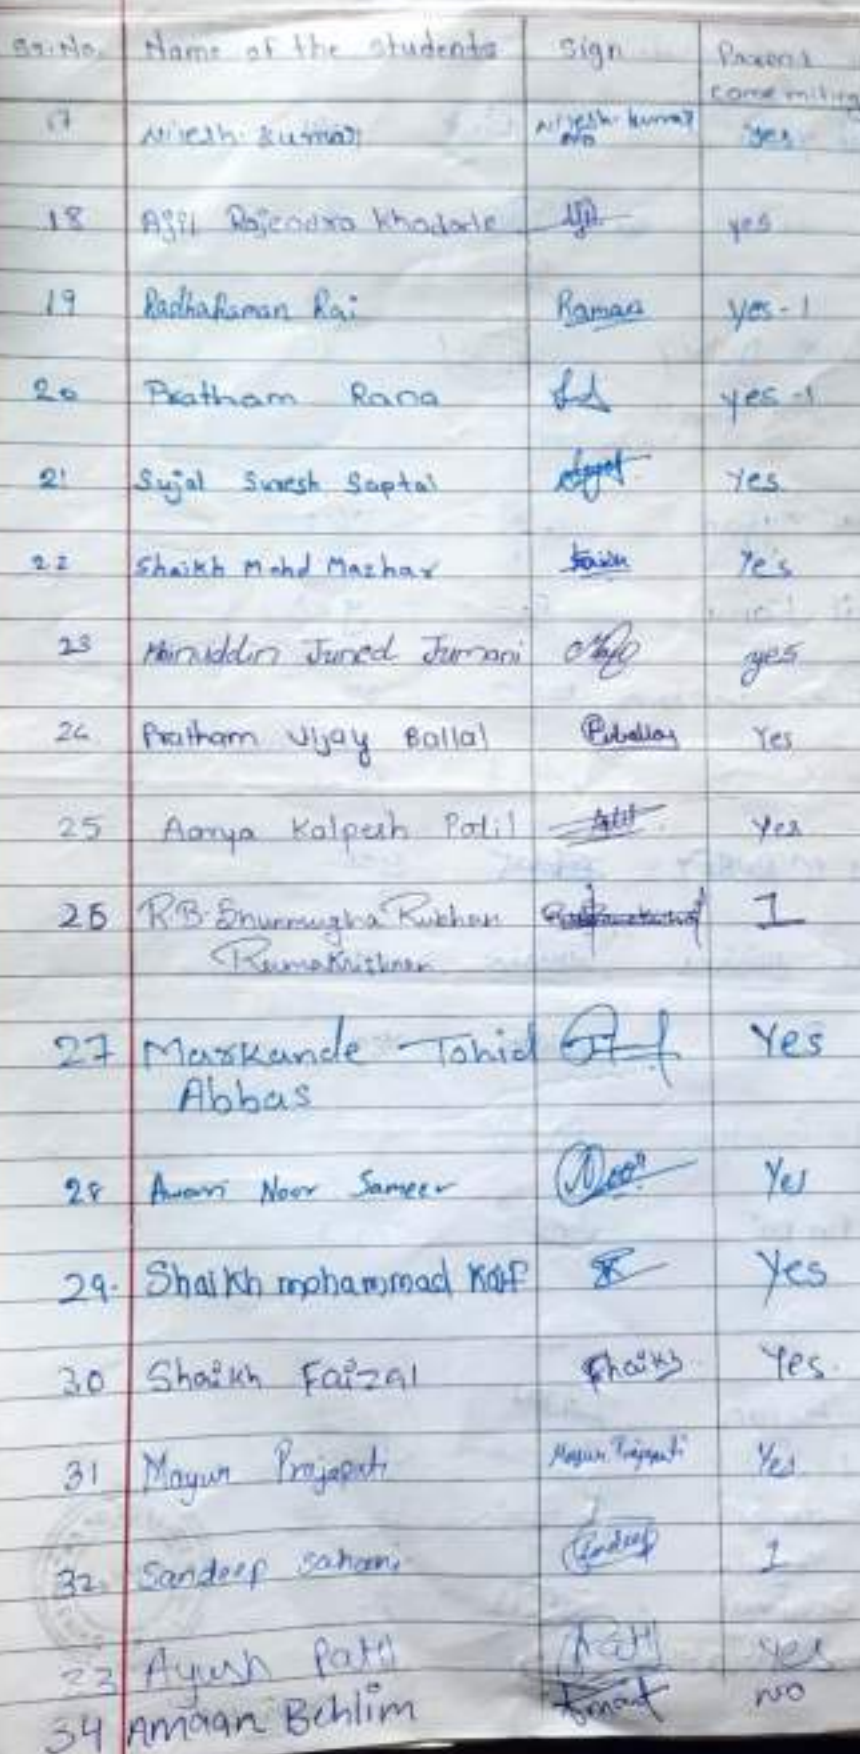 Sr.No. Name of the students Sign Parent
come miting
17 Nilesh Kumar Nilesh Kumar Yes
18 Ajit Rajendra Khadarle yes
19 RadhaRaman Rai Raman Yes-1
20 Pratham Rana yes-1
21 Sujal Suresh Saptal Yes
22 Shaikh Mohd Mazhar Yes
23 Moinuddin Juned Jumani yes
24 Pratham Vijay Ballal Yes
25 Aarya Kalpesh Patil Yes
26 R.B. Shunmugha Rukhan 1
Ramakrishnan
27 Markande Tohid Yes
Abbas
28 Awari Noor Sameer Noor Yes
29. Shaikh mohammad Kaif Yes
30 Shaikh Faizal Shaikh Yes.
31 Mayur Prajapati Mayur Prajapati Yes
32. Sandeep Sahani Sandeep 1
33 Ayush Patil Yes
34 Amaan Behlim Amaan NO